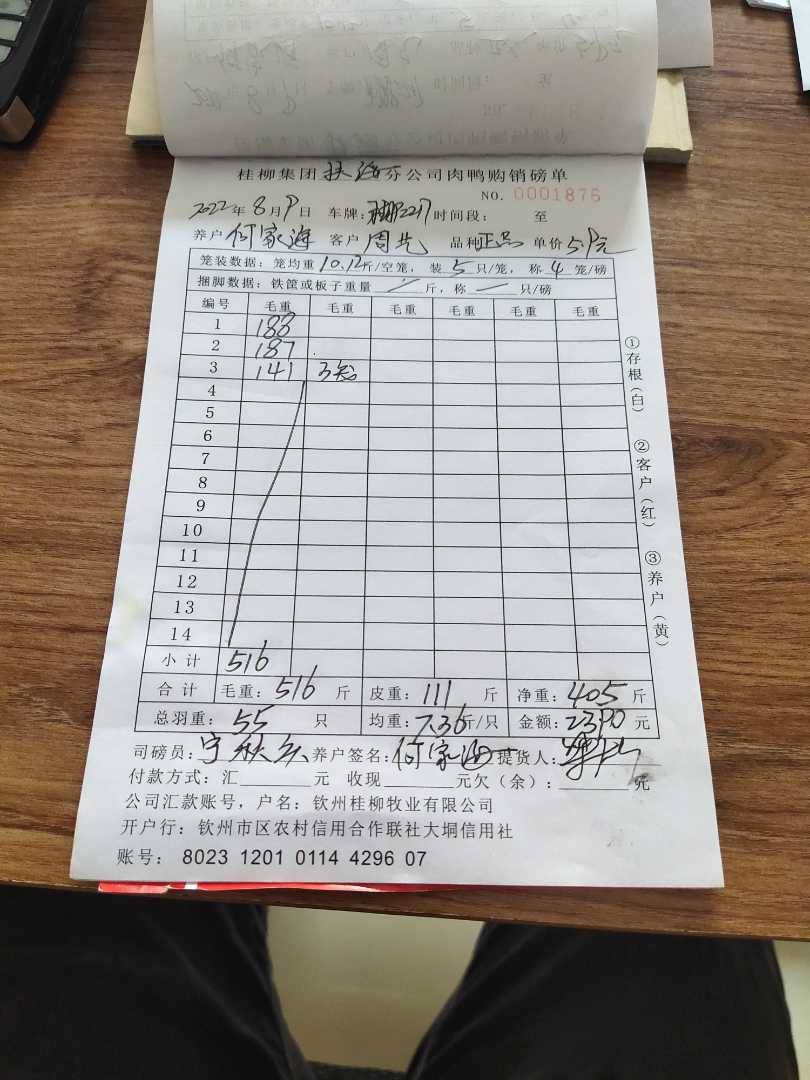 桂柳集团扶海分公司肉鸭购销磅单
NO. 0001876
2022年8月9日 车牌: 2217 时间段: 至
养户何家海 客户周先 品种正品 单价5.9元
笼装数据: 笼均重10.12斤/空笼, 装5只/笼, 称4笼/磅
捆脚数据: 铁筐或板子重量 — 斤, 称 — 只/磅
编号 毛重 毛重 毛重 毛重 毛重 毛重
1 188
2 187
3 141 3笼
4
5
6
7
8
9
10
11
12
13
14
小计 516
合计 毛重: 516 斤 皮重: 111 斤 净重: 405 斤
总羽重: 55 只 均重: 7.36斤/只 金额: 2390 元
司磅员: 养户签名: 何家海 提货人:
付款方式: 汇______元 收现______元欠(余): ______元
公司汇款账号, 户名: 钦州桂柳牧业有限公司
开户行: 钦州市区农村信用合作联社大垌信用社
账号: 8023 1201 0114 4296 07
①存根(白)
②客户(红)
③养户(黄)